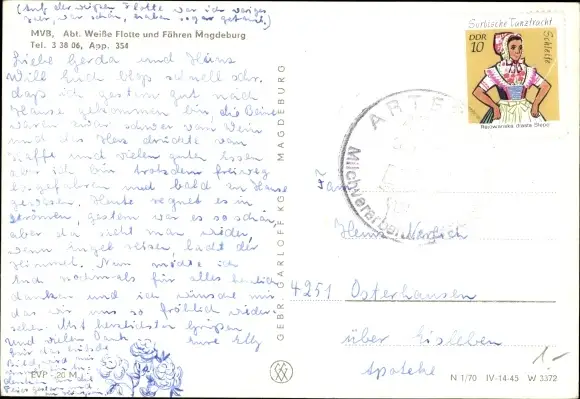 (Auf der weißen Flotte war ich voriges
MVB, Abt. Weiße Flotte und Fähren Magdeburg
Tel. 3 38 06, App. 354
Liebe Gerda und Heinz
Will Euch bloß schnell schr.
daß ich gestern gut nach
Hause gekommen bin, die Beine
waren zwar schwer vom Wein
und das Herz drückte vom
Kaffe und vielen guten Essen
aber ich bin trotzdem freiweg
gefahren und bald zu Hause
gewesen. Heute regnet es in
Strömen, gestern war es so schön,
aber da sieht man wieder,
wenn Engel reisen lacht der
Himmel. Nun möchte ich
Euch nochmals für alles herzlich
danken und ich wünsche mir
das wir uns so fröhlich wieder-
sehen. Mit herzlichsten Grüßen
und vielen Dank Eure Elly
EVP -,20 M
GEBR. GARLOFF KG MAGDEBURG
Sorbische Tanztracht
DDR
10
Schleife
Rejowanska drasta Slepo
ARTE
Milchverarbei
Fam
Heinz
4251 Osterhausen
über Eisleben
Apotheke
1.-
N 1/70 IV-14-45 W 3372